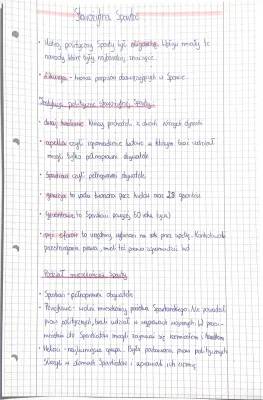 Starożytna Sparta
• Ustrój polityczny Sparty był oligarchią. Wpływ miały te
narody które były najbardziej znaczące.
• Likurg - twórca przepisów obowiązujących w Sparcie.
Instytucje polityczne starożytnej Sparty.
• dwaj królowie którzy pochodzili z dwóch różnych dynastii
• apella czyli zgromadzenie ludowe w którym brać udział
mogli tylko pełnoprawni obywatele
• Spartiaci czyli pełnoprawni obywatele
• geruzja to rada tworzona przez królów oraz 28 gerontów
• geruntowie to Spartiaci powyżej 60 roku życia
• pięciu eforów to urzędnicy wybierani na rok przez apellę. Kontrolowali
przestrzeganie prawa, mieli też prawo
Podział mieszkańców Sparty
• Spartiaci - pełnoprawni obywatele
• Periojkowie - wolni mieszkańcy państwa Spartańskiego. Nie posiadali
praw politycznych, brali udział w wyprawach wojennych. W
do Spartiatów mogli zajmować się rzemiosłem i handlem
• Heloci - najliczniejsza grupa. Była pozbawiona praw politycznych
Służyli w domach Spartiatów i uprawiali ich ziemię